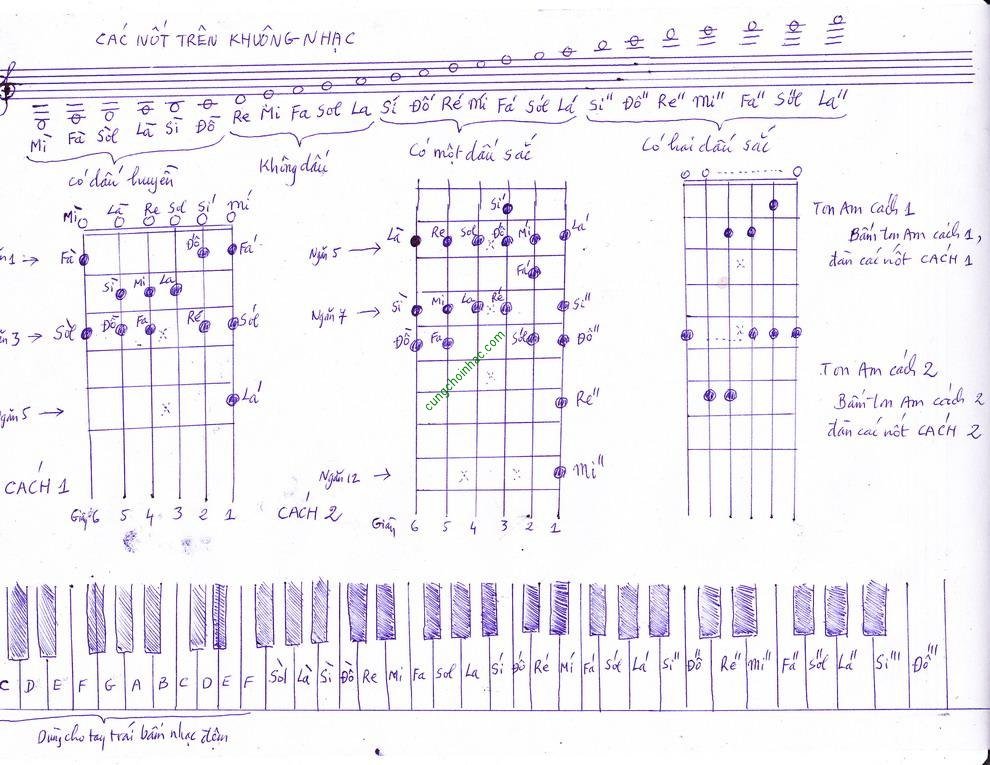 CÁC NỐT TRÊN KHUÔNG NHẠC
Mì Fà Sòl Là Sì Đồ Re Mi Fa Sol La Sí Đố Ré Mí Fá Sól Lá Si'' Đố'' Re'' Mi'' Fa'' Sol'' La''
có dấu huyền
Không dấu
Có một dấu sắc
Có hai dấu sắc
Mì Là Re Sol Sí Mí
Fà Đố Fá
Sì Mi La
Ngăn 3 → Sòl Đồ Fa Ré Sól
Ngăn 5 → Lá
CÁCH 1
Giây 6 5 4 3 2 1
Sí
Ngăn 5 → Là Re Sol Đố Mí Lá
Fá
Ngăn 7 → Sì Mi La Ré Si''
Đồ Fa Sól Đô''
Re''
Ngăn 12 → Mi''
CÁCH 2
Giây 6 5 4 3 2 1
cungchoinhac.com
Ton Am cách 1
Bấm ton Am cách 1,
đàn các nốt CÁCH 1
Ton Am cách 2
Bấm ton Am cách 2
đàn các nốt CÁCH 2
C D E F G A B C D E F Sòl Là Sì Đồ Re Mi Fa Sol La Sí Đố Ré Mí Fá Sól Lá Si'' Đô'' Re'' Mi'' Fa'' Sol'' La'' Si''' Đô'''
Dùng cho tay trái bấm nhạc đệm